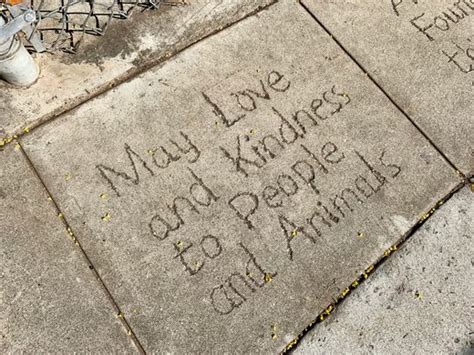 May Love
and Kindness
to People
and Animals
A
Foun
th